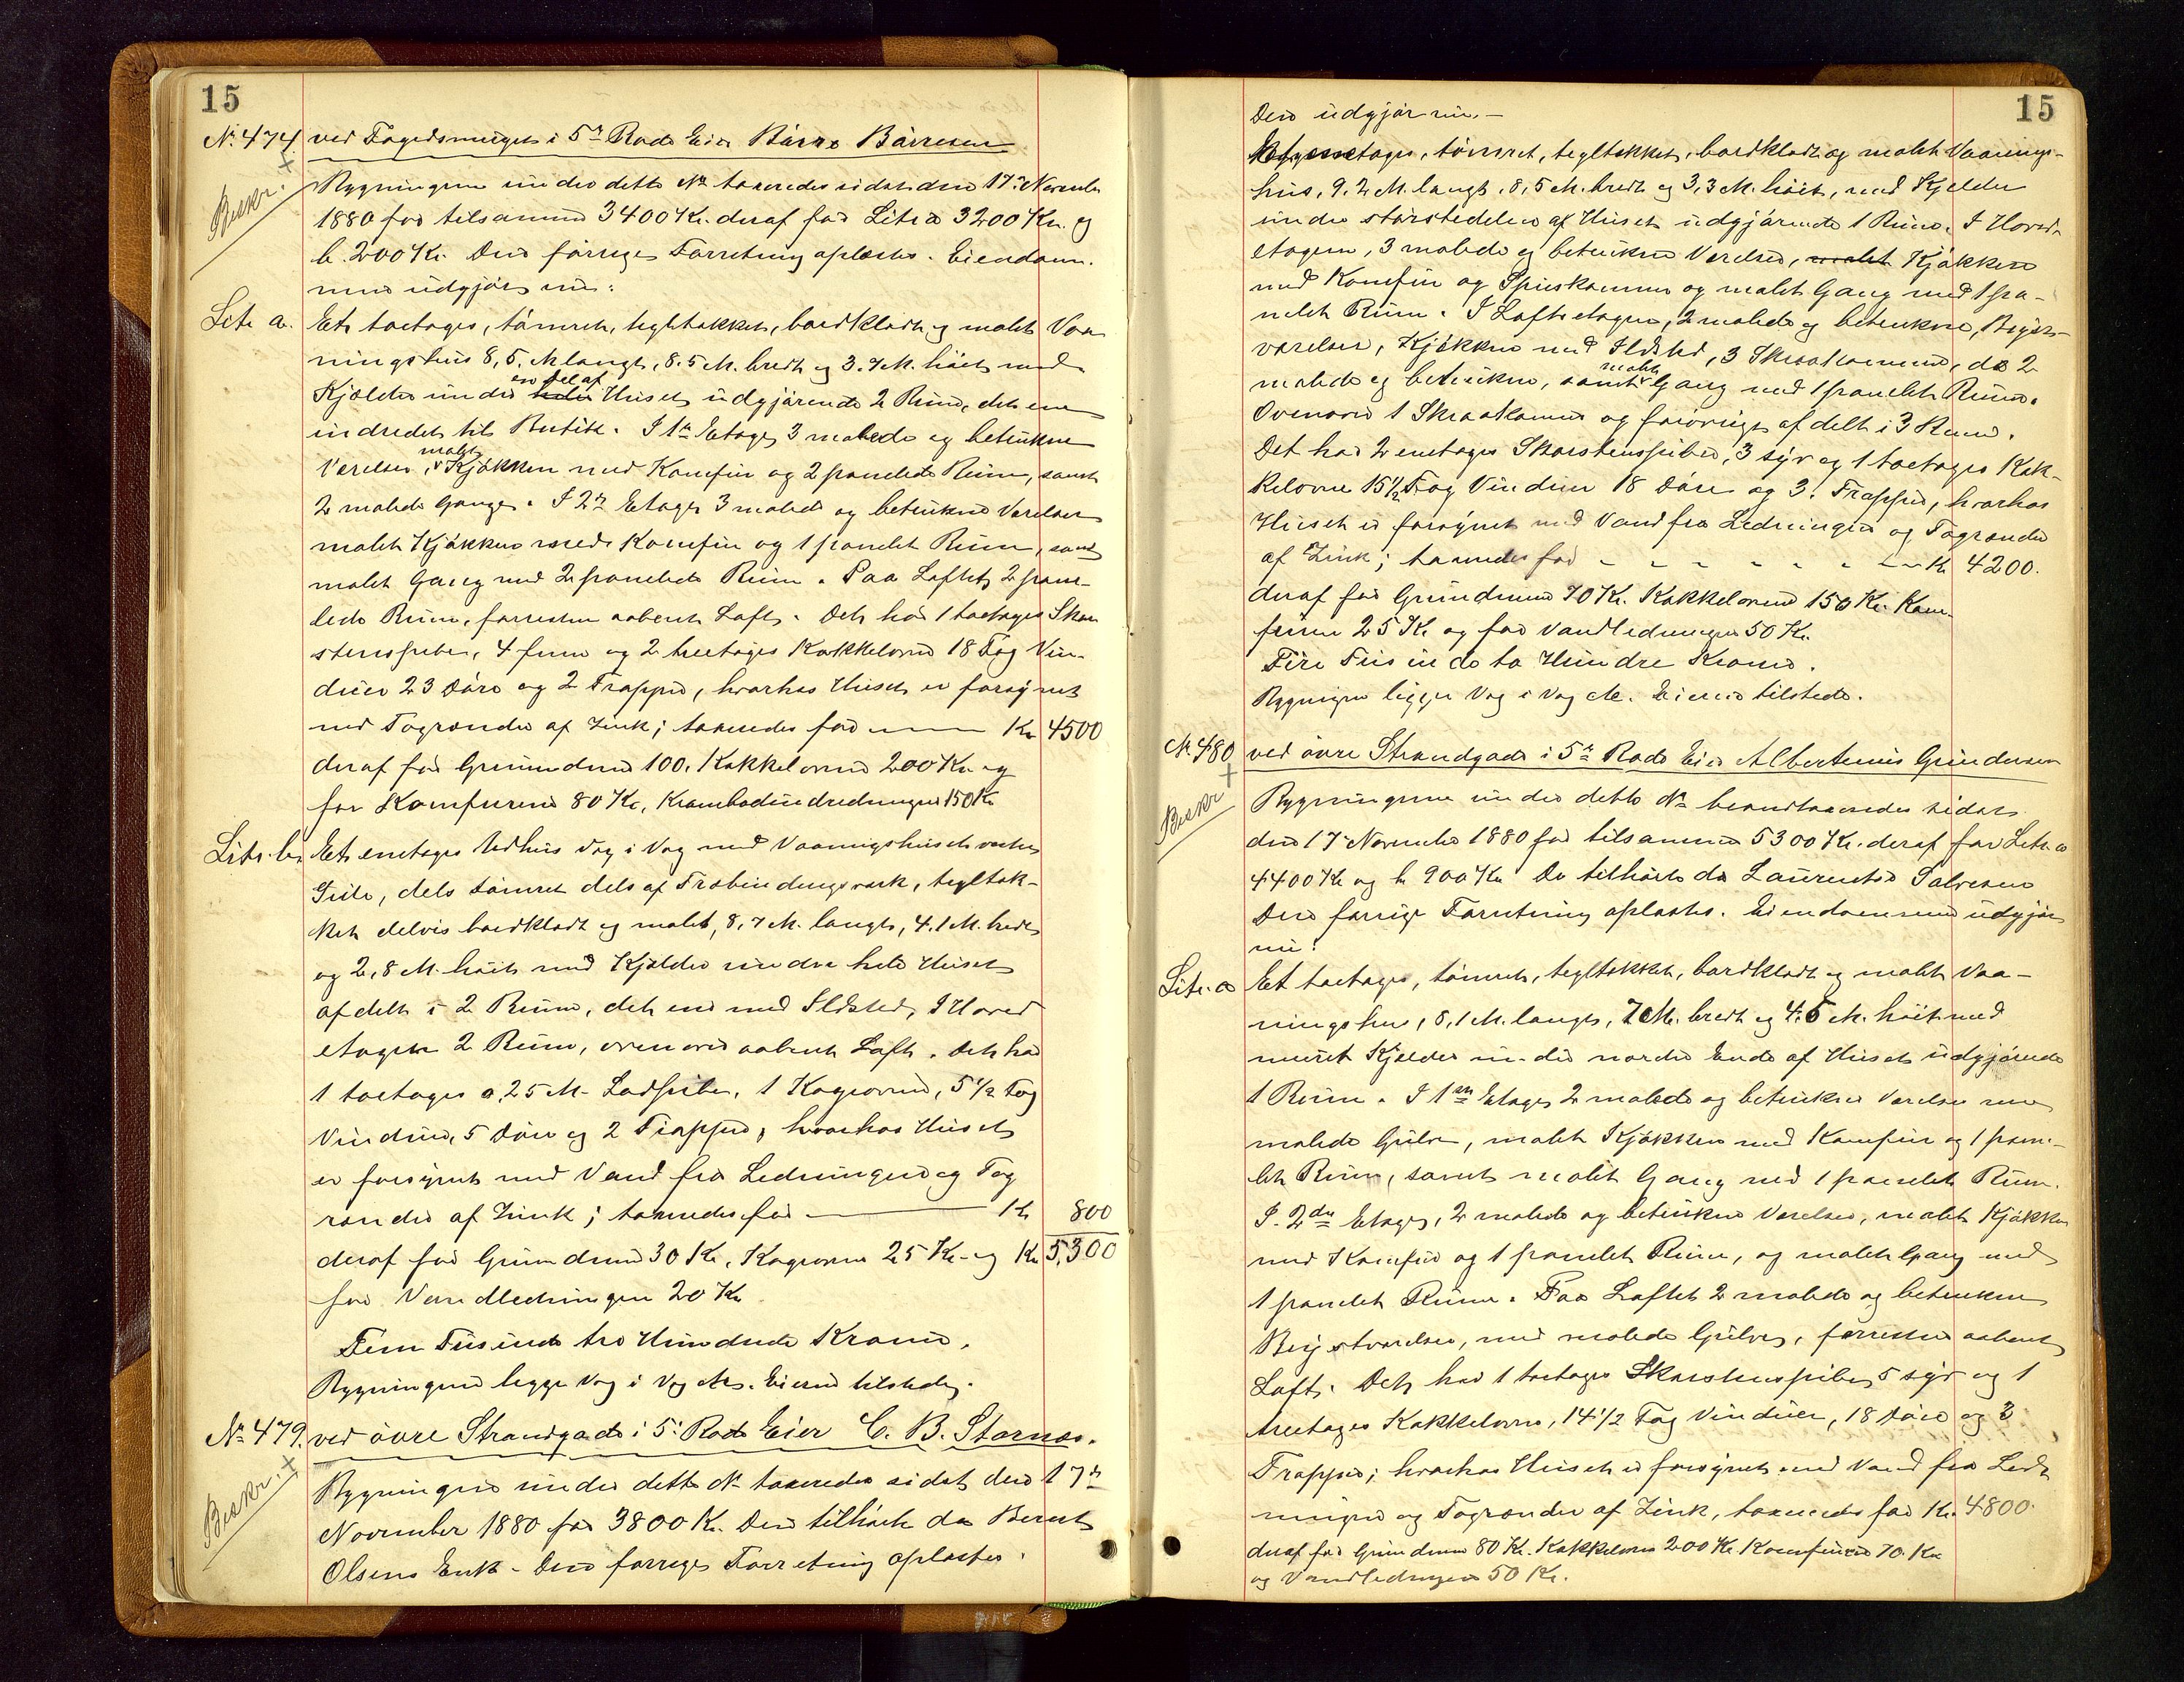 15
No 474. ved Fogedsmuget i 5te Rode Eier Børre Børresen
Beskr.
Bygningerne under dette No taxeredes sidst den 17de November
1880 for tilsammen 3400 Kr. deraf for Litra a 3200 Kr. og
b. 200 Kr. Den forrige Forretning oplæstes. Eiendom-
men udgjør nu:
Litr a. Et toetages, tømret, tegltækket, bordklædt og malet Vaa-
ningshus 8,5. M langt, 8.5 M. bredt og 3.7 M. høit med
Kjælder under hele en Del af Huset udgjørende 2 Rum, det ene
indredet til Butik. I 1ste Etage 3 malede og betrukne
Værelser, malet Kjøkken med Komfur og 2 panelede Rum, samt
2 malede Gange. I 2den Etage 3 malede og betrukne Værelser
malet Kjøkken med Komfur og 1 panelet Rum, samt
malet Gang med 2 panelede Rum. Paa Loftet 2 pane-
lede Rum, forresten aabent Loft. Det har 1 toetages Skor-
stenspibe, 4 fine og 2 treetages Kakkelovne 18 Fag Vin-
duer 23 Døre og 2 Trapper, hvorhos Huset er forsynet
med Tagrender af Zink; taxeredes for Kr 4500
deraf for Grunden 100. Kakkelovne 200 Kr. og
for Komfurene 80 Kr., Krambodindredningen 150 Kr
Litr. b. Et enetages Udhus Væg i Væg med Vaaningshusets vestre
Side, dels tømret dels af Træbindingsværk, tegltæk-
ket delvis bordklædt og malet, 8,7 M. langt, 4.1 M. bredt
og 2,8 M. høit med Kjælder under hele Huset
afdelt i 2 Rum, det ene med Ildsted, I Hoved
etagen 2 Rum, ovenover aabent Loft. Det har
1 toetages 0,25 M. Ladpibe, 1 Kogeovn, 5 1/2 Fag
Vinduer, 5 Døre og 2 Trapper, hvorhos Huset
er forsynet med Vand fra Ledningen og Tag
render af Zink; taxeredes for Kr 800
deraf for Grunden 30 Kr., Kogeovn 25 Kr. og Kr 5,300
for Vandledningen 20 Kr
Fem Tusinde tre Hundrede Kroner.
Bygningerne ligge Væg i Væg etc. Eieren tilstede.
No 479. ved øvre Strandgade i 5te Rode Eier C. B. Stornæs.
Beskr.
Bygningen under dette No taxeredes sidst den 17de
November 1880 for 3800 Kr. Den tilhørte da Bernt
Olsens Enke. Den forrige Forretning oplæstes.
15
Den udgjør nu.-
Et toetages, tømret, tegltækket, bordklædt og malet Vaanings-
hus, 9.2 M. langt, 8,5 M. bredt og 3,3 M. høit, med Kjelder
under størstedelen af Huset udgjørende 1 Rum. I Hoved-
etagen, 3 malede og betrukne Værelser, malet Kjøkken
med Komfur og Spiskammer og malet Gang med 1 pa-
nelet Rum. I Loftsetagen, 2 malede og betrukne, Bryst-
værelser, Kjøkken med Ildsted, 3 Skraakammere, de 2
malede og betrukne, samt malet Gang med 1 panelet Rum.
Ovenover 1 Skraakammer og forøvrigt afdelt i 3 Rum.
Det har 2 enetages Skorstenspiber, 3 syv og 1 toetages Kak-
kelovne 15 1/2 Fag Vinduer 18 Døre og 3. Trapper, hvorhos
Huset er forsynet med Vand fra Ledningen og Tagrender
af Zink; taxeredes for Kr 4200.
deraf for Grunden 70 Kr. Kakkelovne 150 Kr. Kom-
furene 25 Kr. og for Vandledningen 50 Kr.
Fire Tusinde to Hundre Kroner.
Bygningen ligger Væg i Væg etc. Eieren tilstede.
No. 480 ved øvre Strandgade i 5te Rode Eier Albertinus Gundersen
Beskr
Bygningerne under dette No brandtaxeredes sidst
den 17 November 1880 for tilsammen 5300 Kr. deraf for Litr. a
4400 Kr og b 900 Kr De tilhørte da Laurentse Salvesen
Den forrige Forretning oplæstes. Eiendommen udgjør
nu:
Litr. a Et toetages, tømret, tegltækket, bordklædt og malet Vaa-
ningshus, 8,1 M. langt, 7 M. bredt og 4.5 M. høit med
muret Kjælder under nordre Ende af Huset udgjørende
1 Rum. I 1ste Etage 2 malede og betrukne Værelser med
malede Gulve, malet Kjøkken med Komfur og 1 pane-
let Rum, samt malet Gang med 1 panelet Rum.
I. 2den Etage, 2 malede og betrukne Værelser, malet Kjøkken
med Komfur og 1 panelet Rum, og malet Gang med
1 panelet Rum. Paa Loftet 2 malede og betrukne
Brystværelser, med malede Gulve, forresten aabent
Loft. Det har 1 toetages Skorstenspibe, 5 syv og 1
treetages Kakkelovne, 14 1/2 Fag Vinduer, 18 Døre og 3
Trapper; hvorhos Huset er forsynet med Vand fra Led-
ningen og Tagrender af Zink, taxeredes for Kr. 4800.
deraf for Grunden 80 Kr. Kakkelovne 200 Kr Komfurene 70. Kr
og Vandledningen 50 Kr.